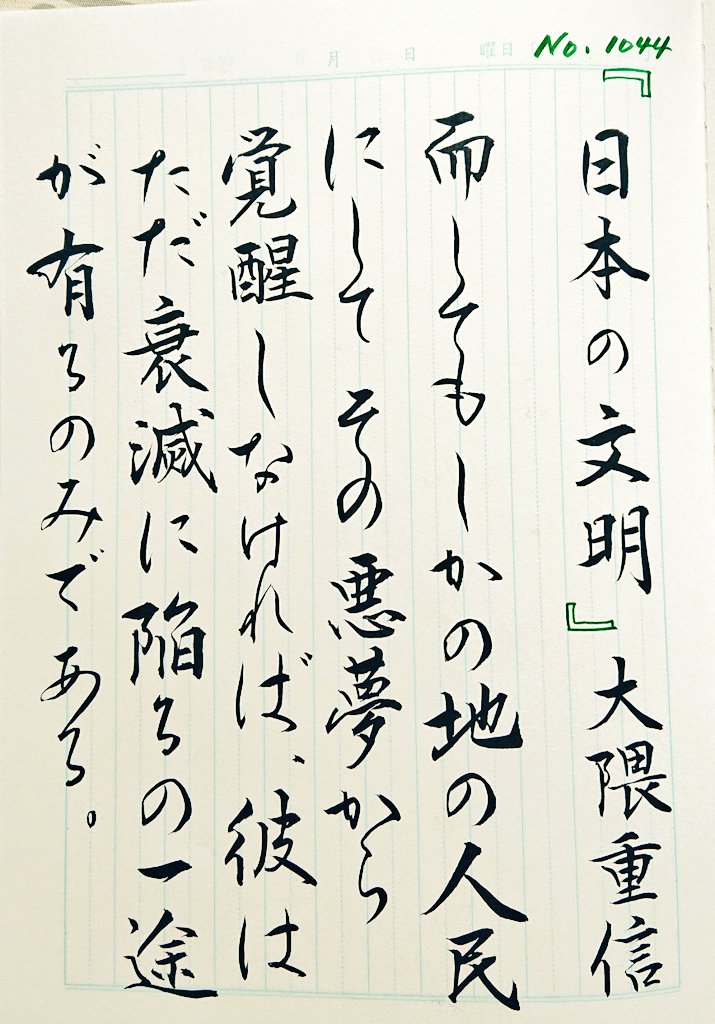 月 日 曜日
No. 1044
『日本の文明』大隈重信
而してもしかの地の人民
にしてその悪夢から
覚醒しなければ、彼は
ただ衰滅に陥るの一途
が有るのみである。